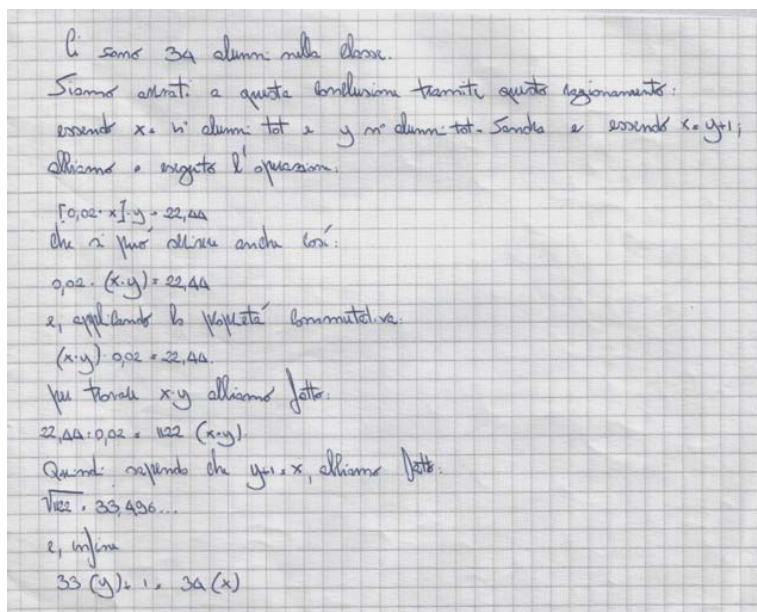 Ci sono 34 alunni nella classe.
Siamo arrivati a questa conclusione tramite questo ragionamento:
essendo x = n° alunni tot e y n° alunni tot - Sandra e essendo x = y+1;
abbiamo eseguito l'operazione:
[0,02 · x] · y = 22,44
che si può scrivere anche così:
0,02 · (x·y) = 22,44
e, applicando la proprietà commutativa:
(x·y) · 0,02 = 22,44.
per trovare x·y abbiamo fatto:
22,44 : 0,02 = 1122 (x·y)
Quindi sapendo che y+1 = x, abbiamo fatto:
√1122 = 33,496...
e, infine
33 (y) + 1 = 34 (x)